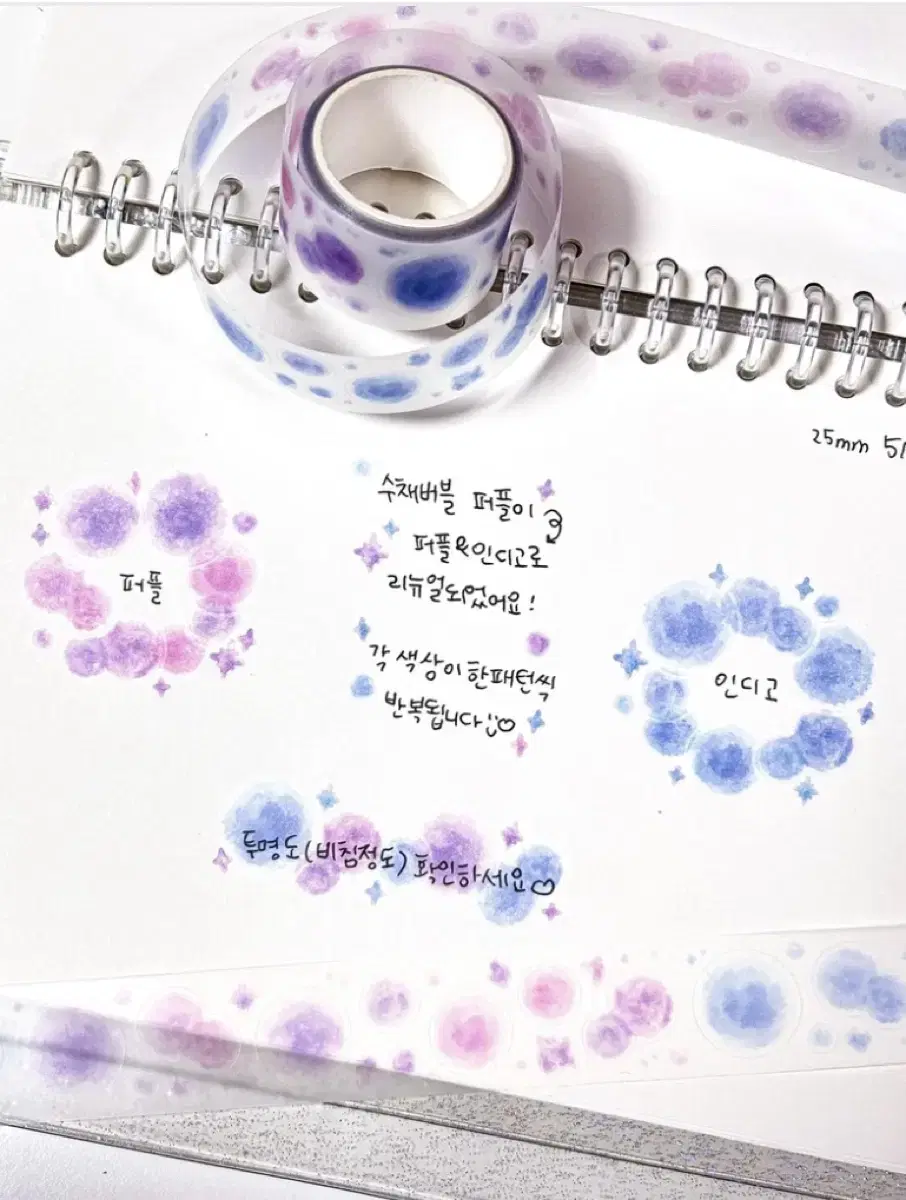 25mm
수채버블 퍼플이
퍼플&인디고로
리뉴얼되었어요!
퍼플
각 색상이 한패턴씩
반복됩니다
인디고
투명도(비침정도) 확인하세요